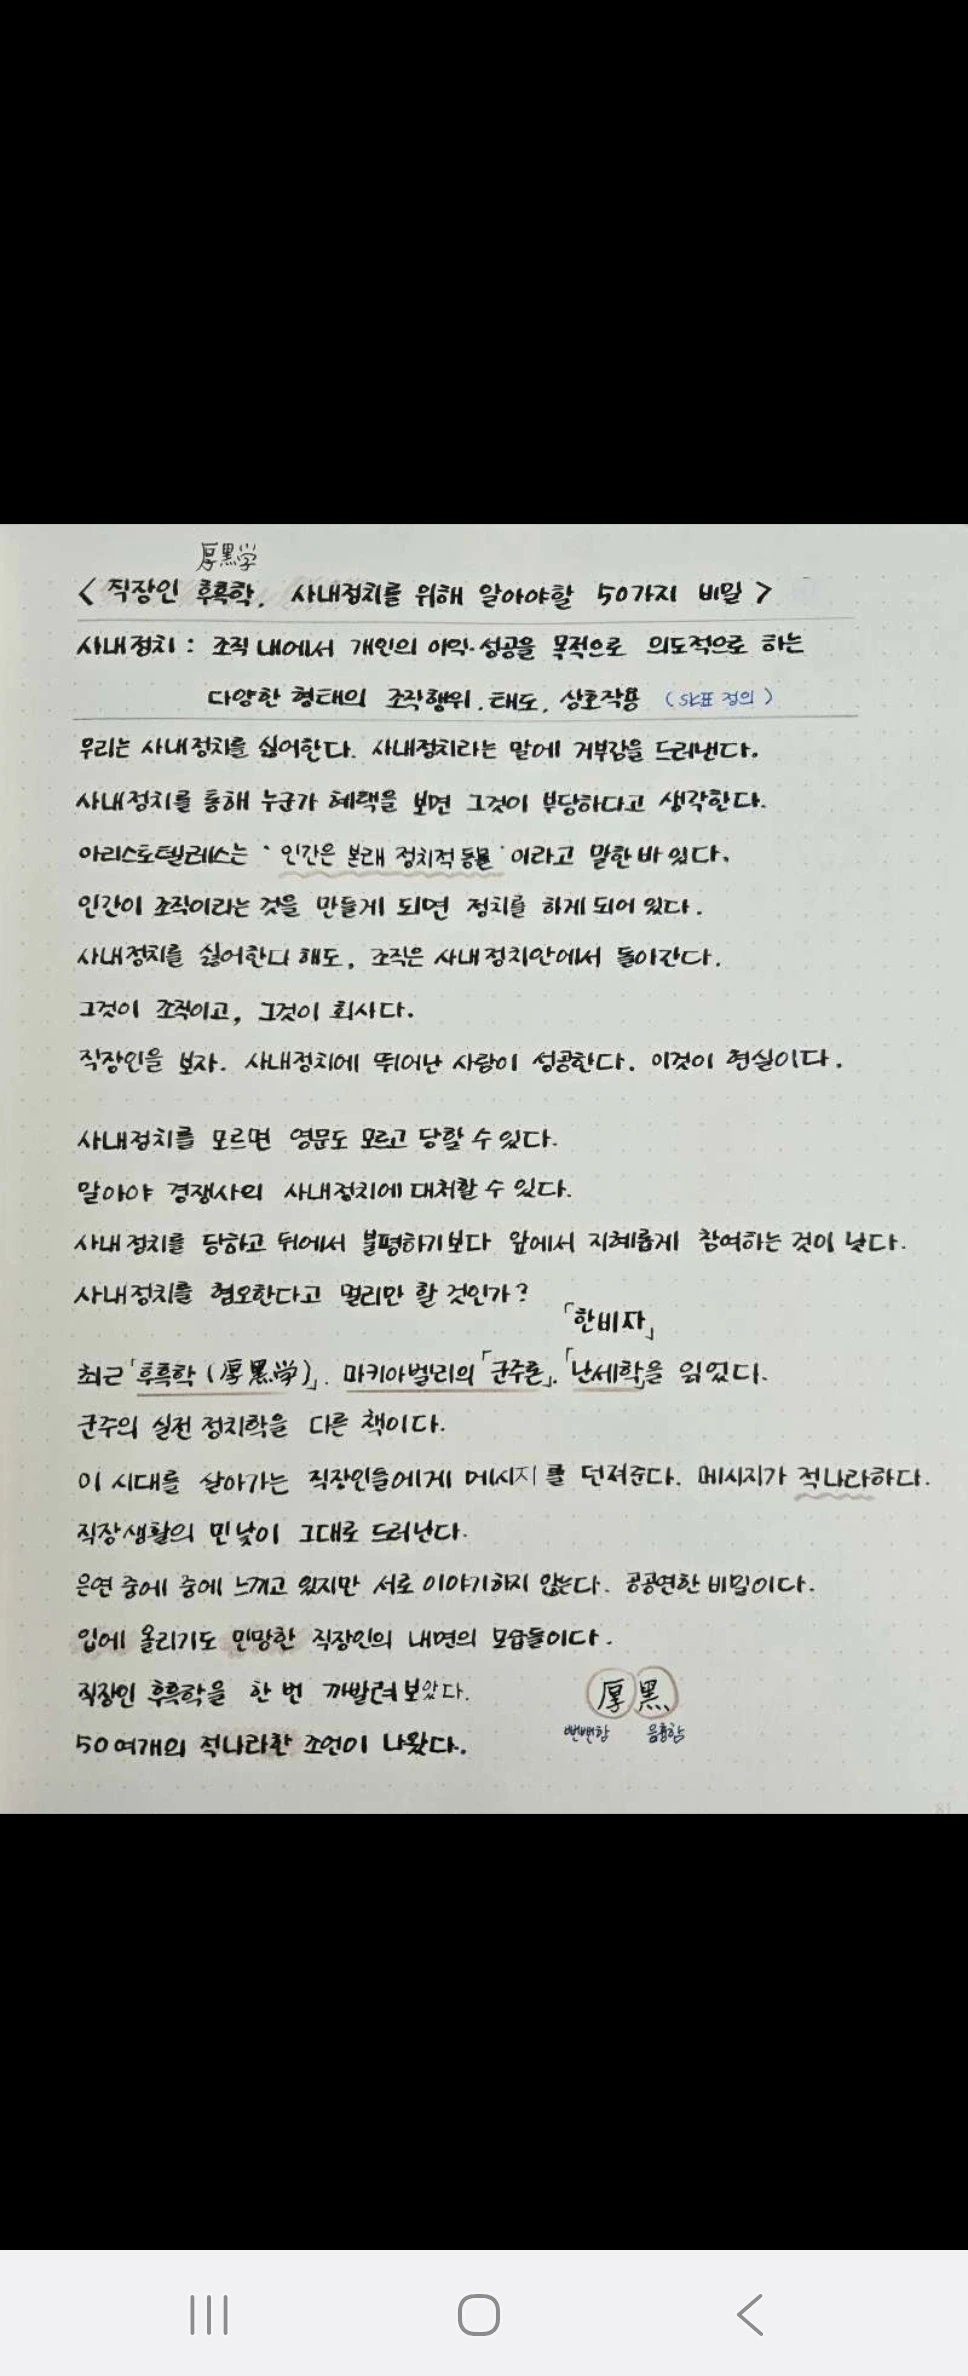 厚黑学
< 직장인 후흑학. 사내정치를 위해 알아야할 50가지 비밀 >
사내정치 : 조직 내에서 개인의 이익·성공을 목적으로 의도적으로 하는
다양한 형태의 조작행위. 태도. 상호작용 (SK표 정의)
우리는 사내정치를 싫어한다. 사내정치라는 말에 거부감을 드러낸다.
사내정치를 통해 누군가 혜택을 보면 그것이 부당하다고 생각한다.
아리스토텔레스는 '인간은 본래 정치적 동물'이라고 말한 바 있다.
인간이 조직이라는 것을 만들게 되면 정치를 하게 되어 있다.
사내정치를 싫어한다 해도, 조직은 사내정치안에서 돌아간다.
그것이 조직이고, 그것이 회사다.
직장인을 보자. 사내정치에 뛰어난 사람이 성공한다. 이것이 현실이다.
사내정치를 모르면 영문도 모르고 당할 수 있다.
알아야 경쟁사의 사내정치에 대처할 수 있다.
사내정치를 당하고 뒤에서 불평하기보다 앞에서 지혜롭게 참여하는 것이 낫다.
사내정치를 혐오한다고 멀리만 할 것인가?
「한비자」
최근「후흑학(厚黑学)」. 마키아벨리의「군주론」.「난세학」을 읽었다.
군주의 실전 정치학을 다룬 책이다.
이 시대를 살아가는 직장인들에게 메시지를 던져준다. 메시지가 적나라하다.
직장생활의 민낯이 그대로 드러난다.
은연 중에 중에 느끼고 있지만 서로 이야기하지 않는다. 공공연한 비밀이다.
입에 올리기도 민망한 직장인의 내면의 모습들이다.
직장인 후흑학을 한 번 까발려보았다.
厚 黑
뻔뻔함 음흉함
50여개의 적나라한 조언이 나왔다.
81